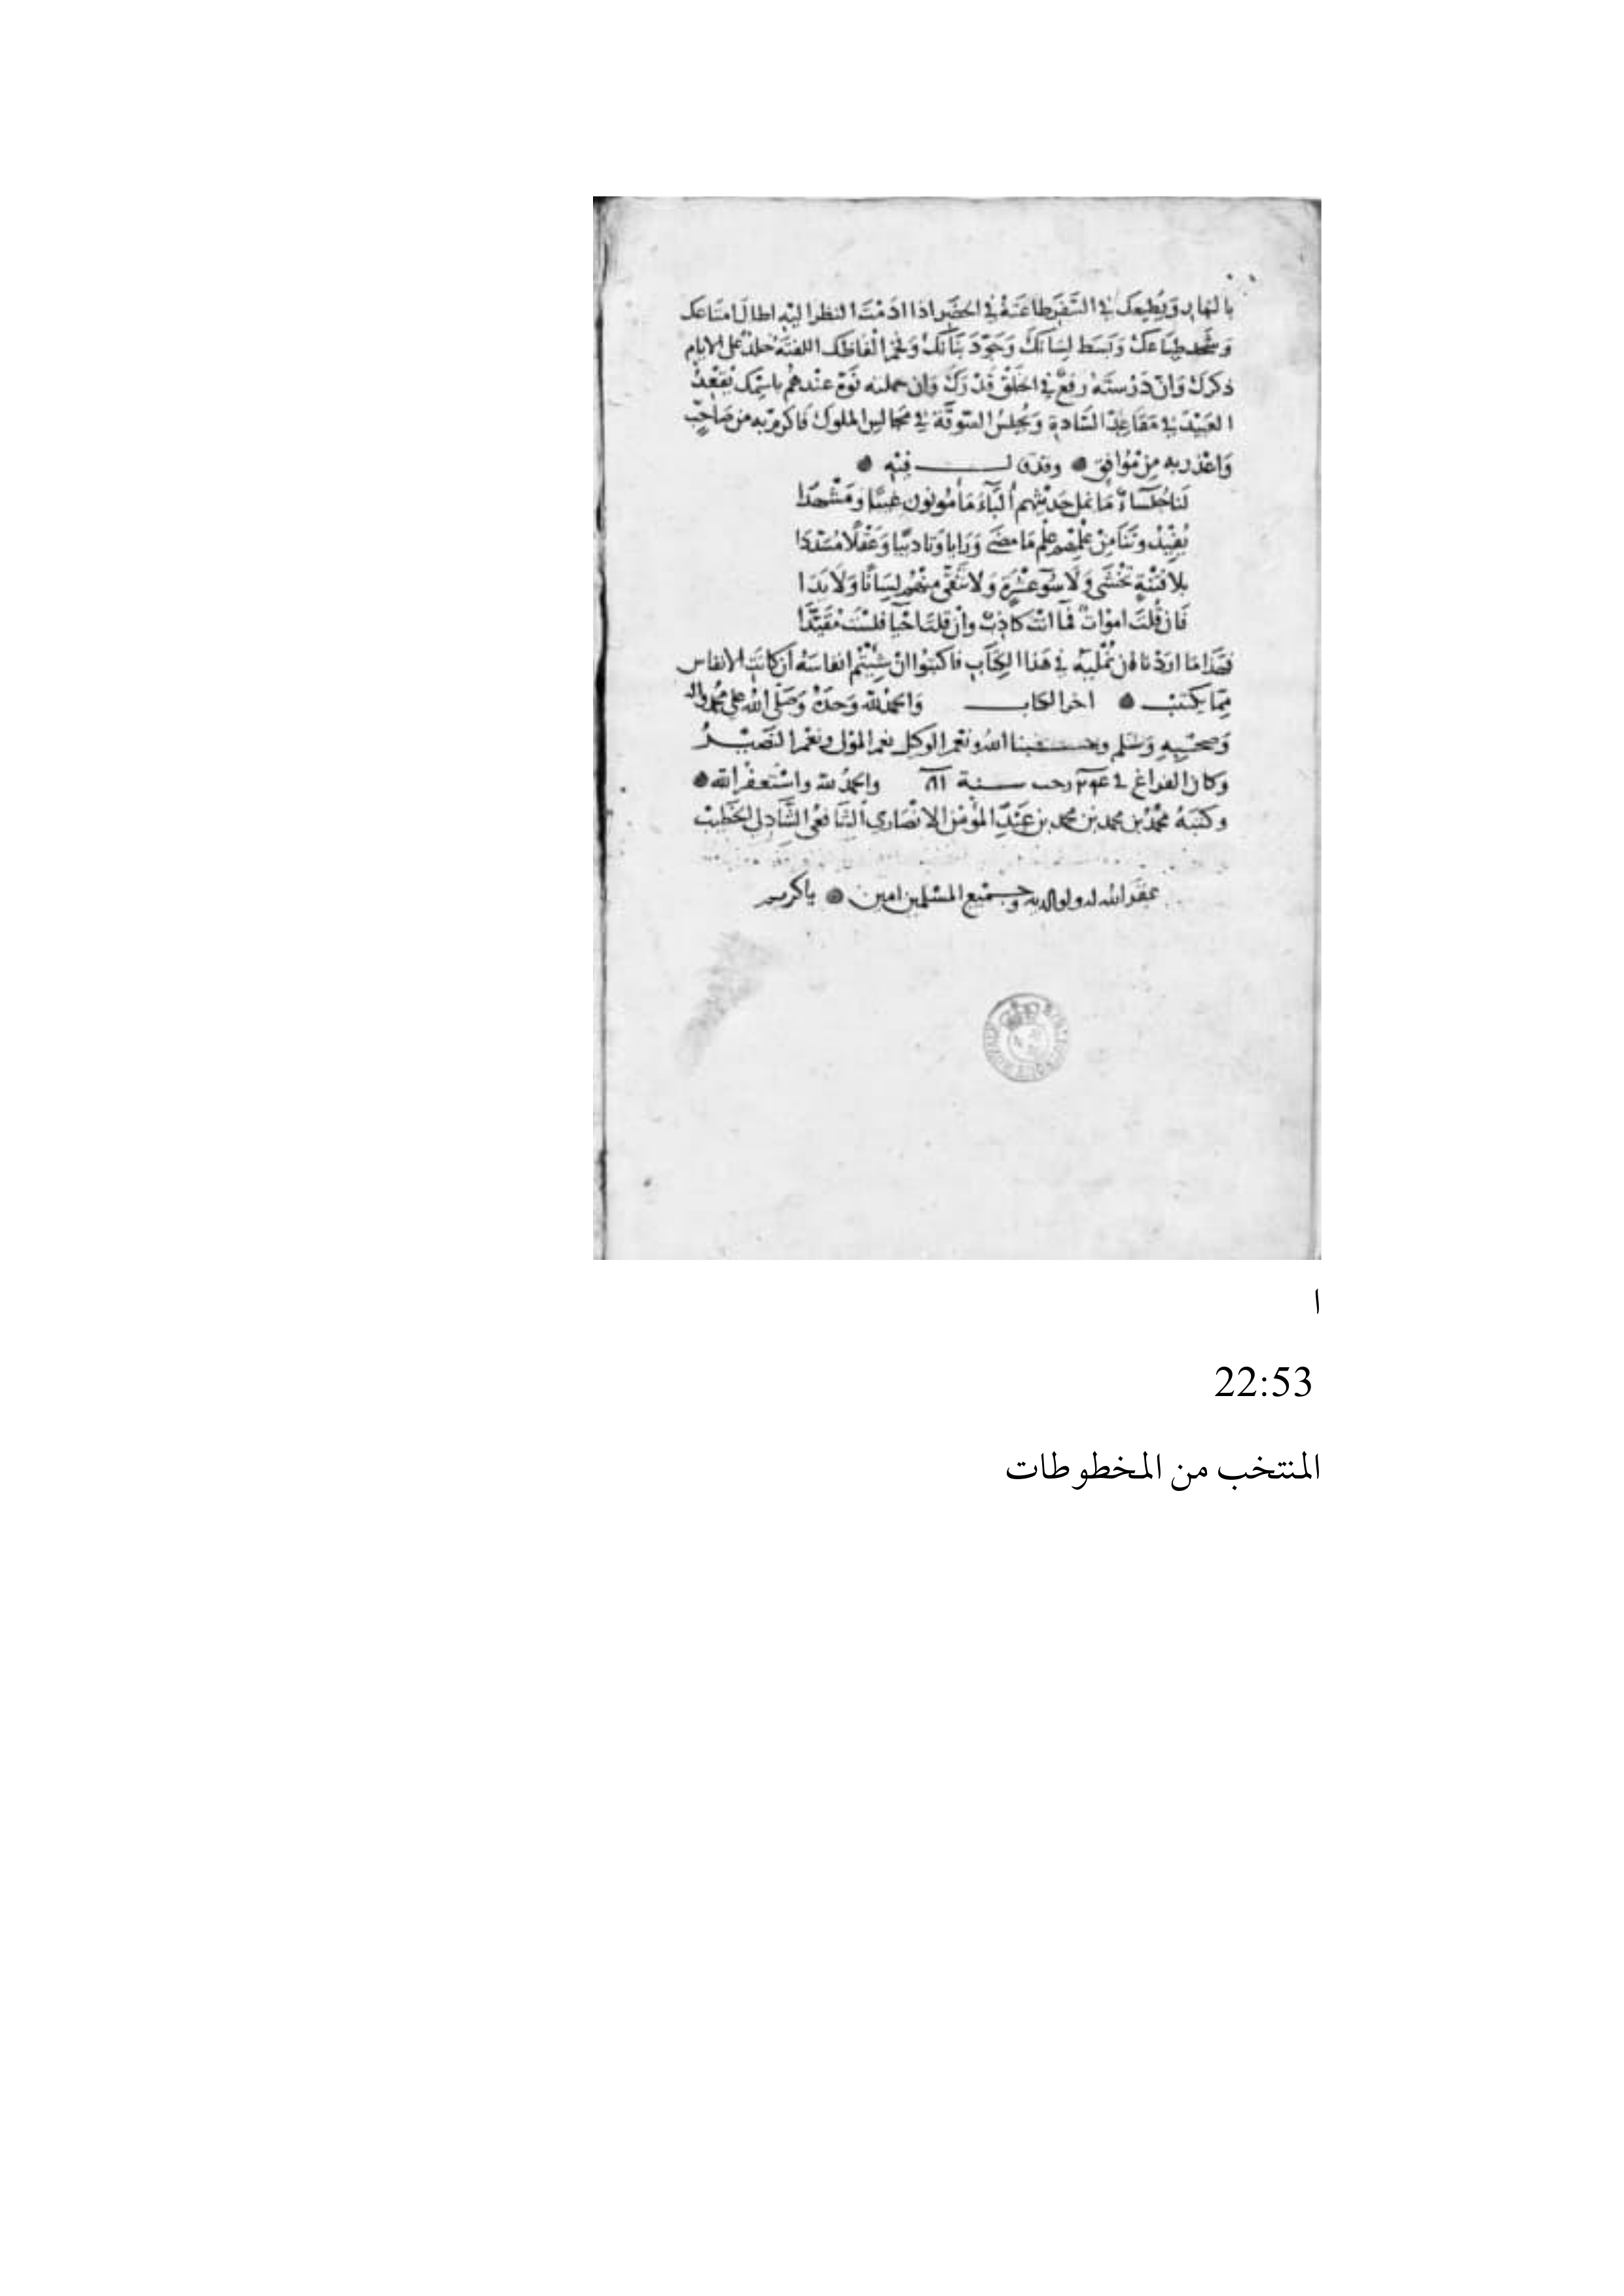 بالنهار ويطيعك في السفر طاعته في الحضر اذا ادمت النظر اليه اطال امتاعك
وشحذ طباعك وبسط لسانك وجود بنانك وفخم الفاظك ان الفته خلد على الايام
ذكرك وان درسته رفع في الخلق قدرك وان حملته نوه عندهم باسمك يقعد
العبيد في مقاعد السادة ويجلس السوقة في مجالس الملوك فاكرم به من صاحب
واعذر به من موافق وقد قيل فيه
لنا جلساء ما نمل حديثهم ألباء مأمونون غيبا ومشهدا
يفيدوننا من علمهم علم ما مضى ورايا وتاديبا وعقلا مسددا
بلا فتنة تخشى ولا سوء عشرة ولا نتقي منهم لسانا ولا يدا
فان قلت اموات فما انت كاذب وان قلت احيا فلست مفندا
فهذا ما اردنا ان نمليه في هذا الكتاب فاكتبوا ان شيتم انفاسه ان كانت الانفاس
مما يكتب اخر الكتاب والحمد لله وحده وصلى الله على محمد واله
وصحبه وسلم وحسبنا الله ونعم الوكيل نعم المولى ونعم النصير
وكان الفراغ في رجب سنة والحمد لله واستغفر الله
وكتبه محمد بن محمد بن محمد بن عبد المؤمن الانصاري الشافعي الشاذلي الخطيب
غفر الله له ولوالديه وجميع المسلمين امين ياكريم
ا
22:53
المنتخب من المخطوطات